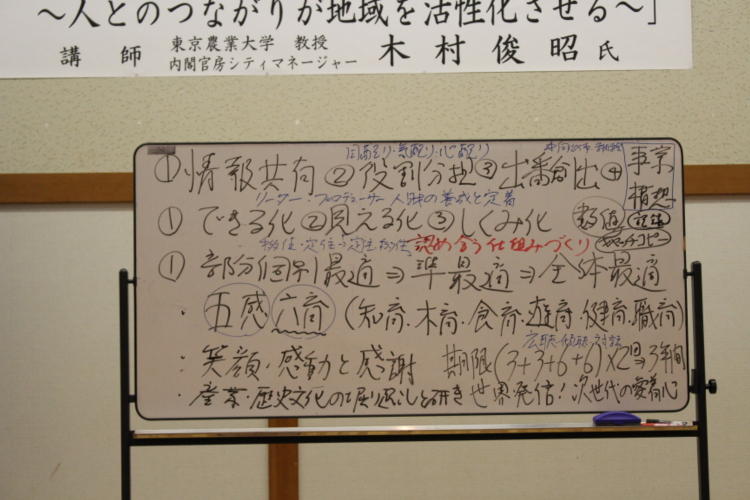 ～人とのつながりが地域を活性化させる～」
講師 東京農業大学 教授 木村俊昭氏
内閣官房シティマネージャー
目配り・気配り・心配り
①情報共有②役割分担③出番創出④事業構想
リーダー・プロデューサー人財の養成と定着
①できる化②見える化③しくみ化 数値
キャッチコピー
認め合う仕組みづくり
①部分個別最適⇒準最適⇒全体最適
・五感六育(知育・木育・食育・遊育・健育・職育)
広聴・傾聴・対話
・笑顔・感動と感謝 期限(3+3+6+6)×2回⇒3年間
・産業・歴史文化の掘り起こしと研き 世界発信！次世代の愛着心